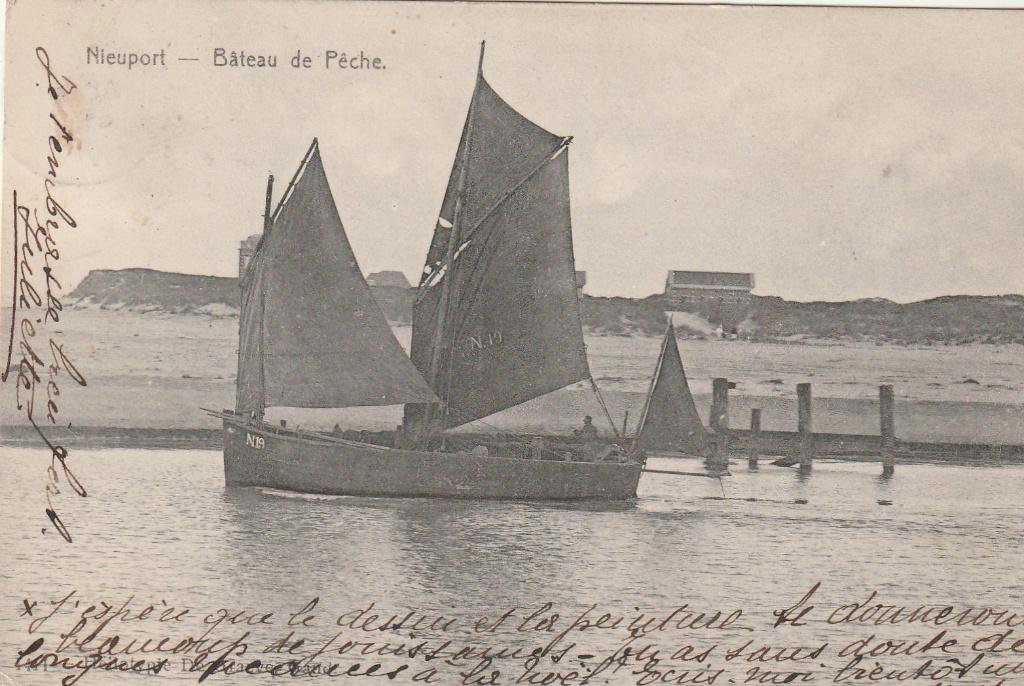 Nieuport — Bâteau de Pêche.
Je t'embrasse très fort.
Juliette
N.19
N.19
x J'espère que le dessin et la peinture te donneron
beaucoup de jouissances - tu as sans doute de
longues vacances à la Noël. Ecris-moi bientôt